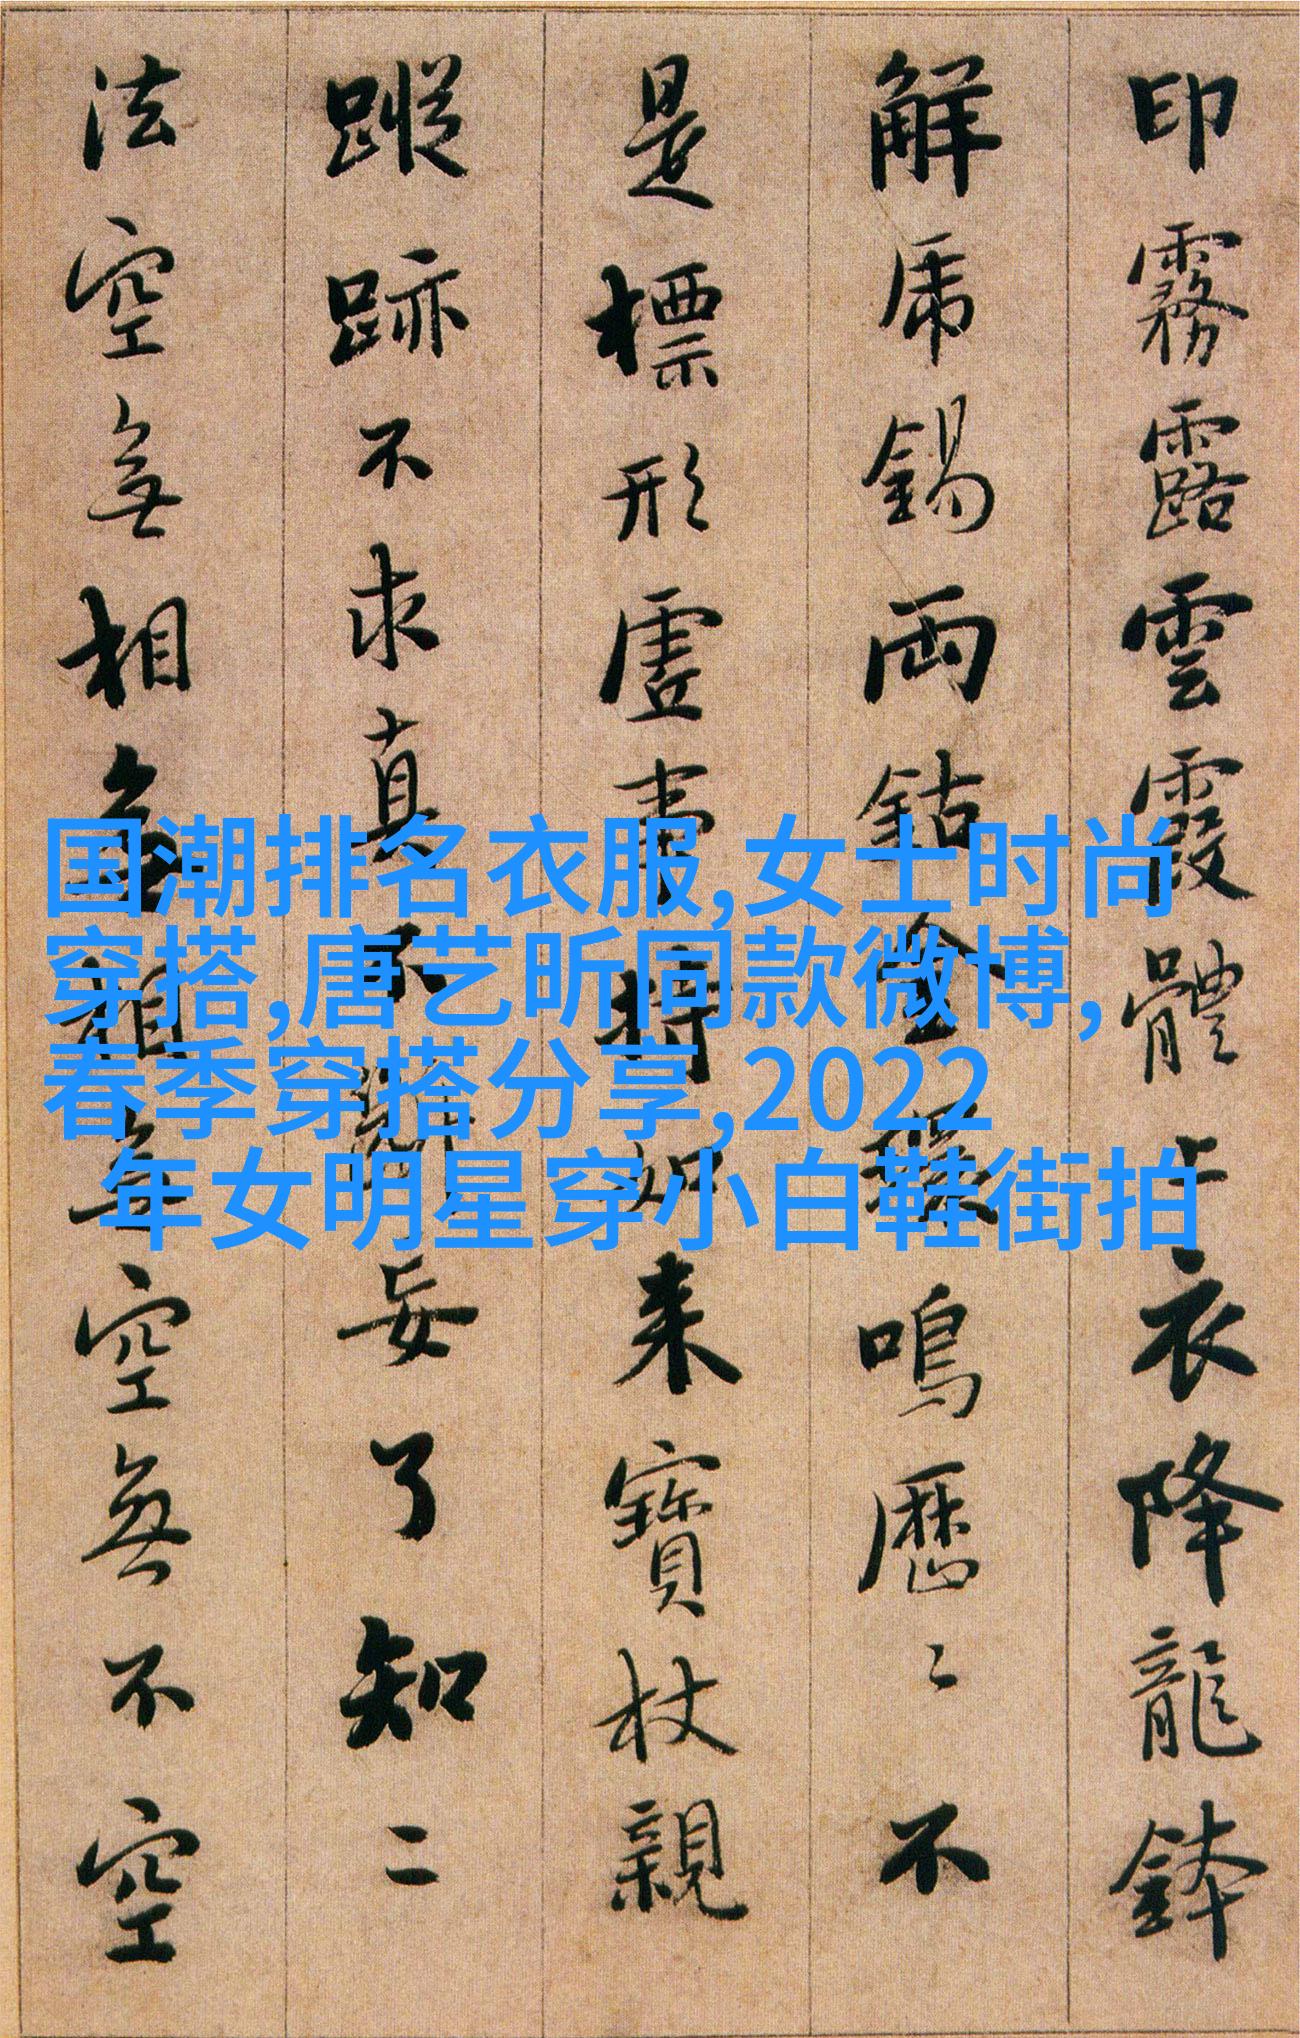 印霧露雲霞體上衣降龍鉢
解虎錫兩鈷金鐶鳴歷〻不
是標形虛事持如来寶杖親
蹤跡不求真不斷妄了知二
法空無相無相無空無不空
国潮排名衣服,女士时尚
穿搭,唐艺昕同款微博,
春季穿搭分享,2022
年女明星穿小白鞋街拍